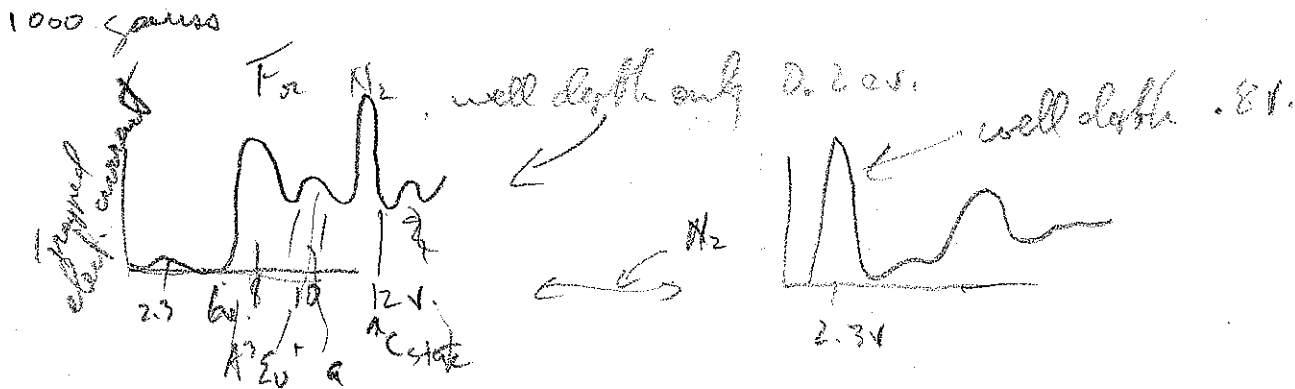 1000 gauss
For N2 well depth only 0.2 ev.
well depth .8v.
trapped elect. current
N2
2.3 6v. 8 10 12v.
2.3v
A3Σu+ a C state